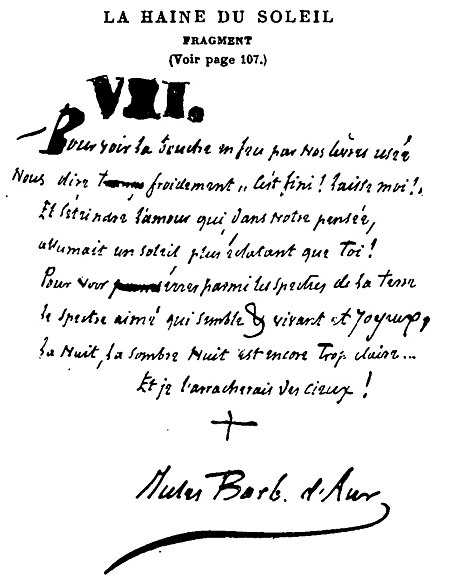 LA HAINE DU SOLEIL
FRAGMENT
(Voir page 107.)
VII.
Pour voir la bouche en feu par nos lèvres usée
Nous dire froidement „ C'est fini ! laisse moi ! „
Et s'éteindre l'amour qui, dans notre pensée,
allumait un soleil plus éclatant que Toi !
Pour voir errer parmi les spectres de la terre
le spectre aimé qui semble & vivant et joyeux,
La Nuit, la sombre Nuit est encore Trop claire...
Et je l'arracherais des cieux !
Jules Barb. d'Aur